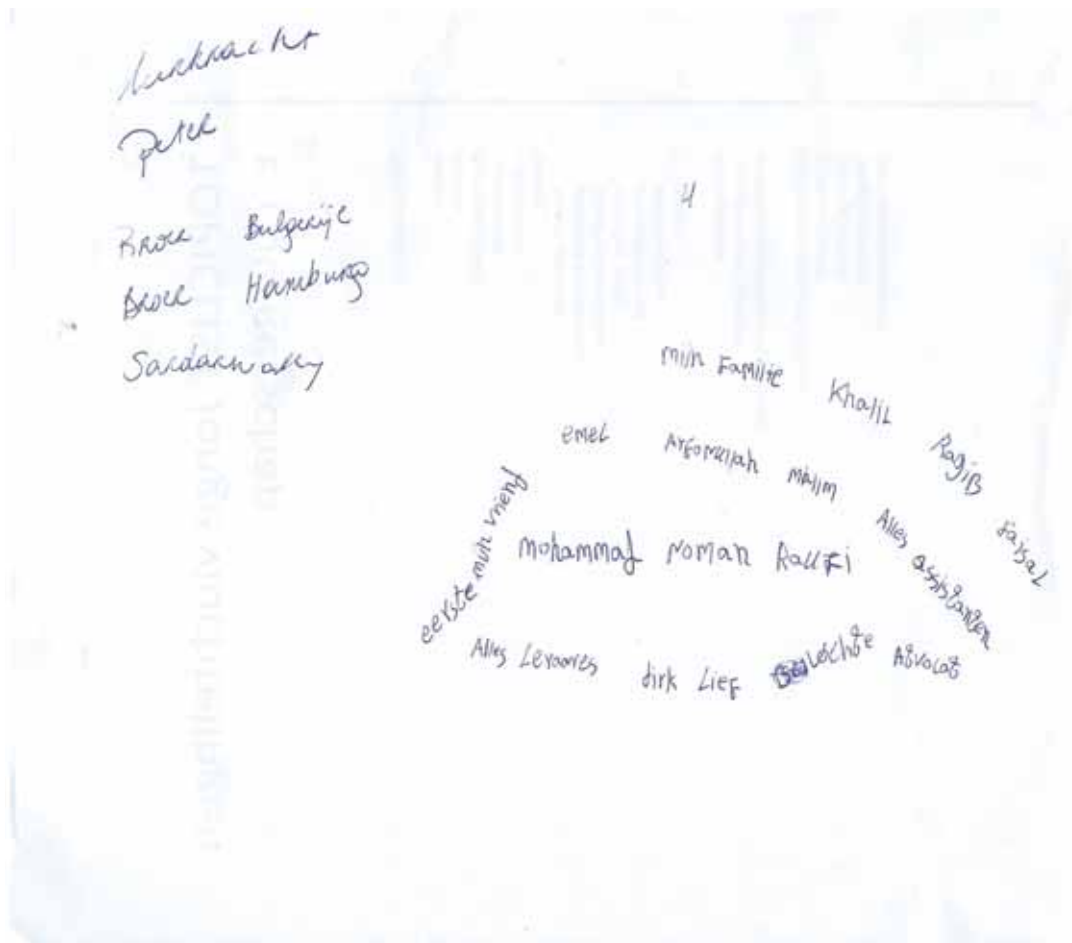 Peter
Broer Bulgarije
Broer Hamburg
Sardarwally
4
mijn Familie Khalil Ragib Faisal
emel mallm Alles assistanten
eerste mijn vriend
mohammad noman Raufi
Alles Leraares dirk Lief Advocat